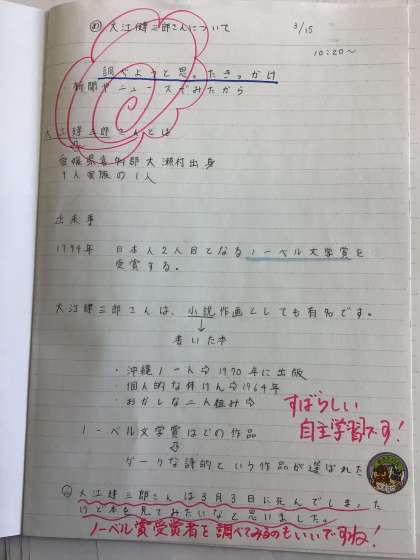 め 大江健三郎さんについて 3/15
10:20〜
調べようと思ったきっかけ
・新聞やニュースでみたから
大江健三郎さんとは
愛媛県喜多郡大瀬村出身
9人家族の1人
出来事
1994年 日本人2人目となるノーベル文学賞を
受賞する。
大江健三郎さんは、小説作画としても有名です。
書いた本
・沖縄ノート⇨1970年に出版
・個人的な体けん⇨1964年
・おかしな二人組み⇨
すばらしい
自主学習です!
ノーベル文学賞はどの作品
ダークな詩的という作品が選ばれた
大江健三郎さんは3月3日に死んでしまった
けど本を見てみたいなと思いました。
ノーベル賞受賞者を調べてみるのもいいですね!